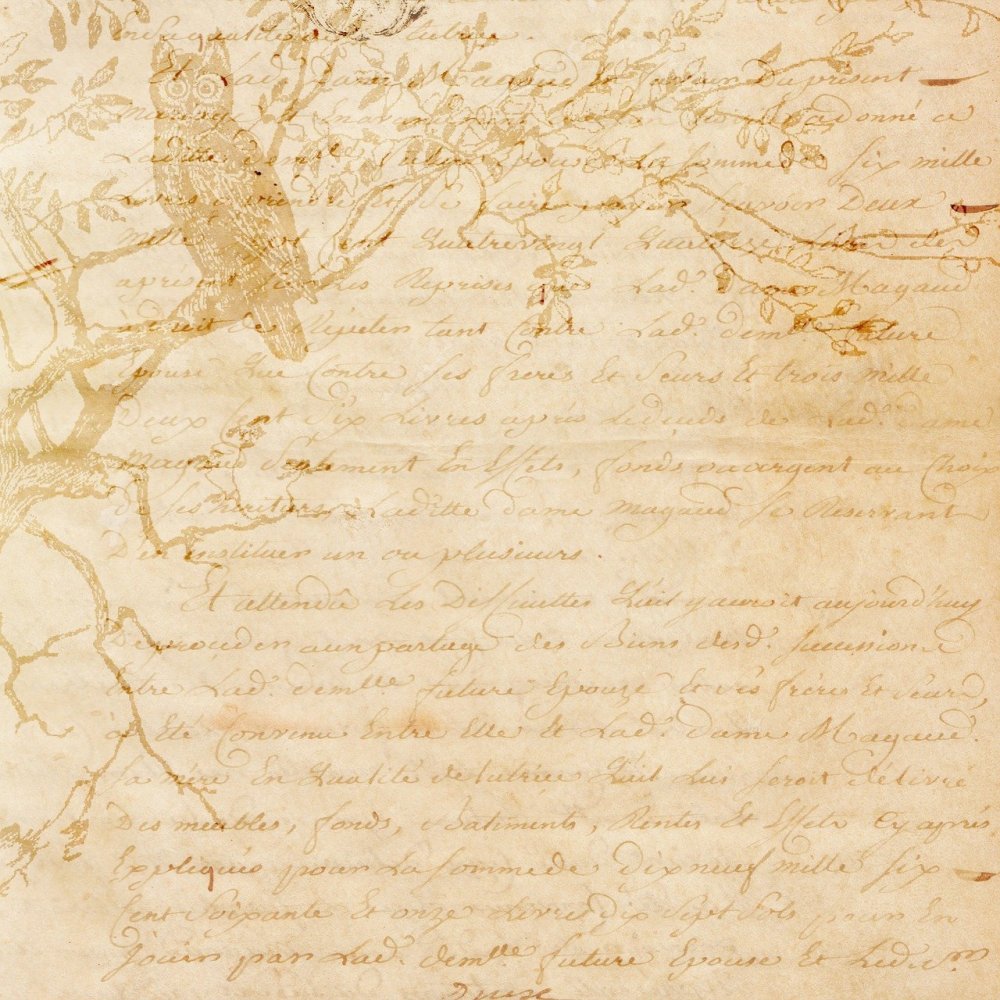 en sa qualité de tutrice.
Et Lad. dame Magaud et
mariage donné a
Laditte dem.lle future Epouse La Somme de six mille
Livres a prendre et Savoir Deux
mille cent Quatrevingt Quatorze Livres
après les Reprises que Lad.e Dame Magaud
à droit de Répéter tant Contre Lad.e dem.lle future
Epouse Que Contre ses freres Et Seurs Et trois mille
Deux Cent Six Livres après Le déces de Lad.e Dame
Magaud Seulement En Effets, fonds ou argent au Choix
De ses heritiers, Laditte dame magaud se Reservant
D'en instituer un ou plusieurs.
Et attendû Les Difficultes Quil y auroit aujourd'huy
De procéder a un partage des Biens desd.e succession
Entre Lad.e dem.lle future Epouze Et ses fréres Et Séurs,
à Eté Convenu Entre Elle Et Lad.e Dame Magaud.
Sa mère En Qualité de tutrice Quil Luis seroit délivré
Des meubles, fonds, Batiments, Rentes Et Effets Cy après
Expliqués pour La Somme de Dix neuf mille six
Cent Soixante Et onze Livres Dix Sept Sols pour En
Jouir par Lad.e dem.lle future Epouse Et Led.